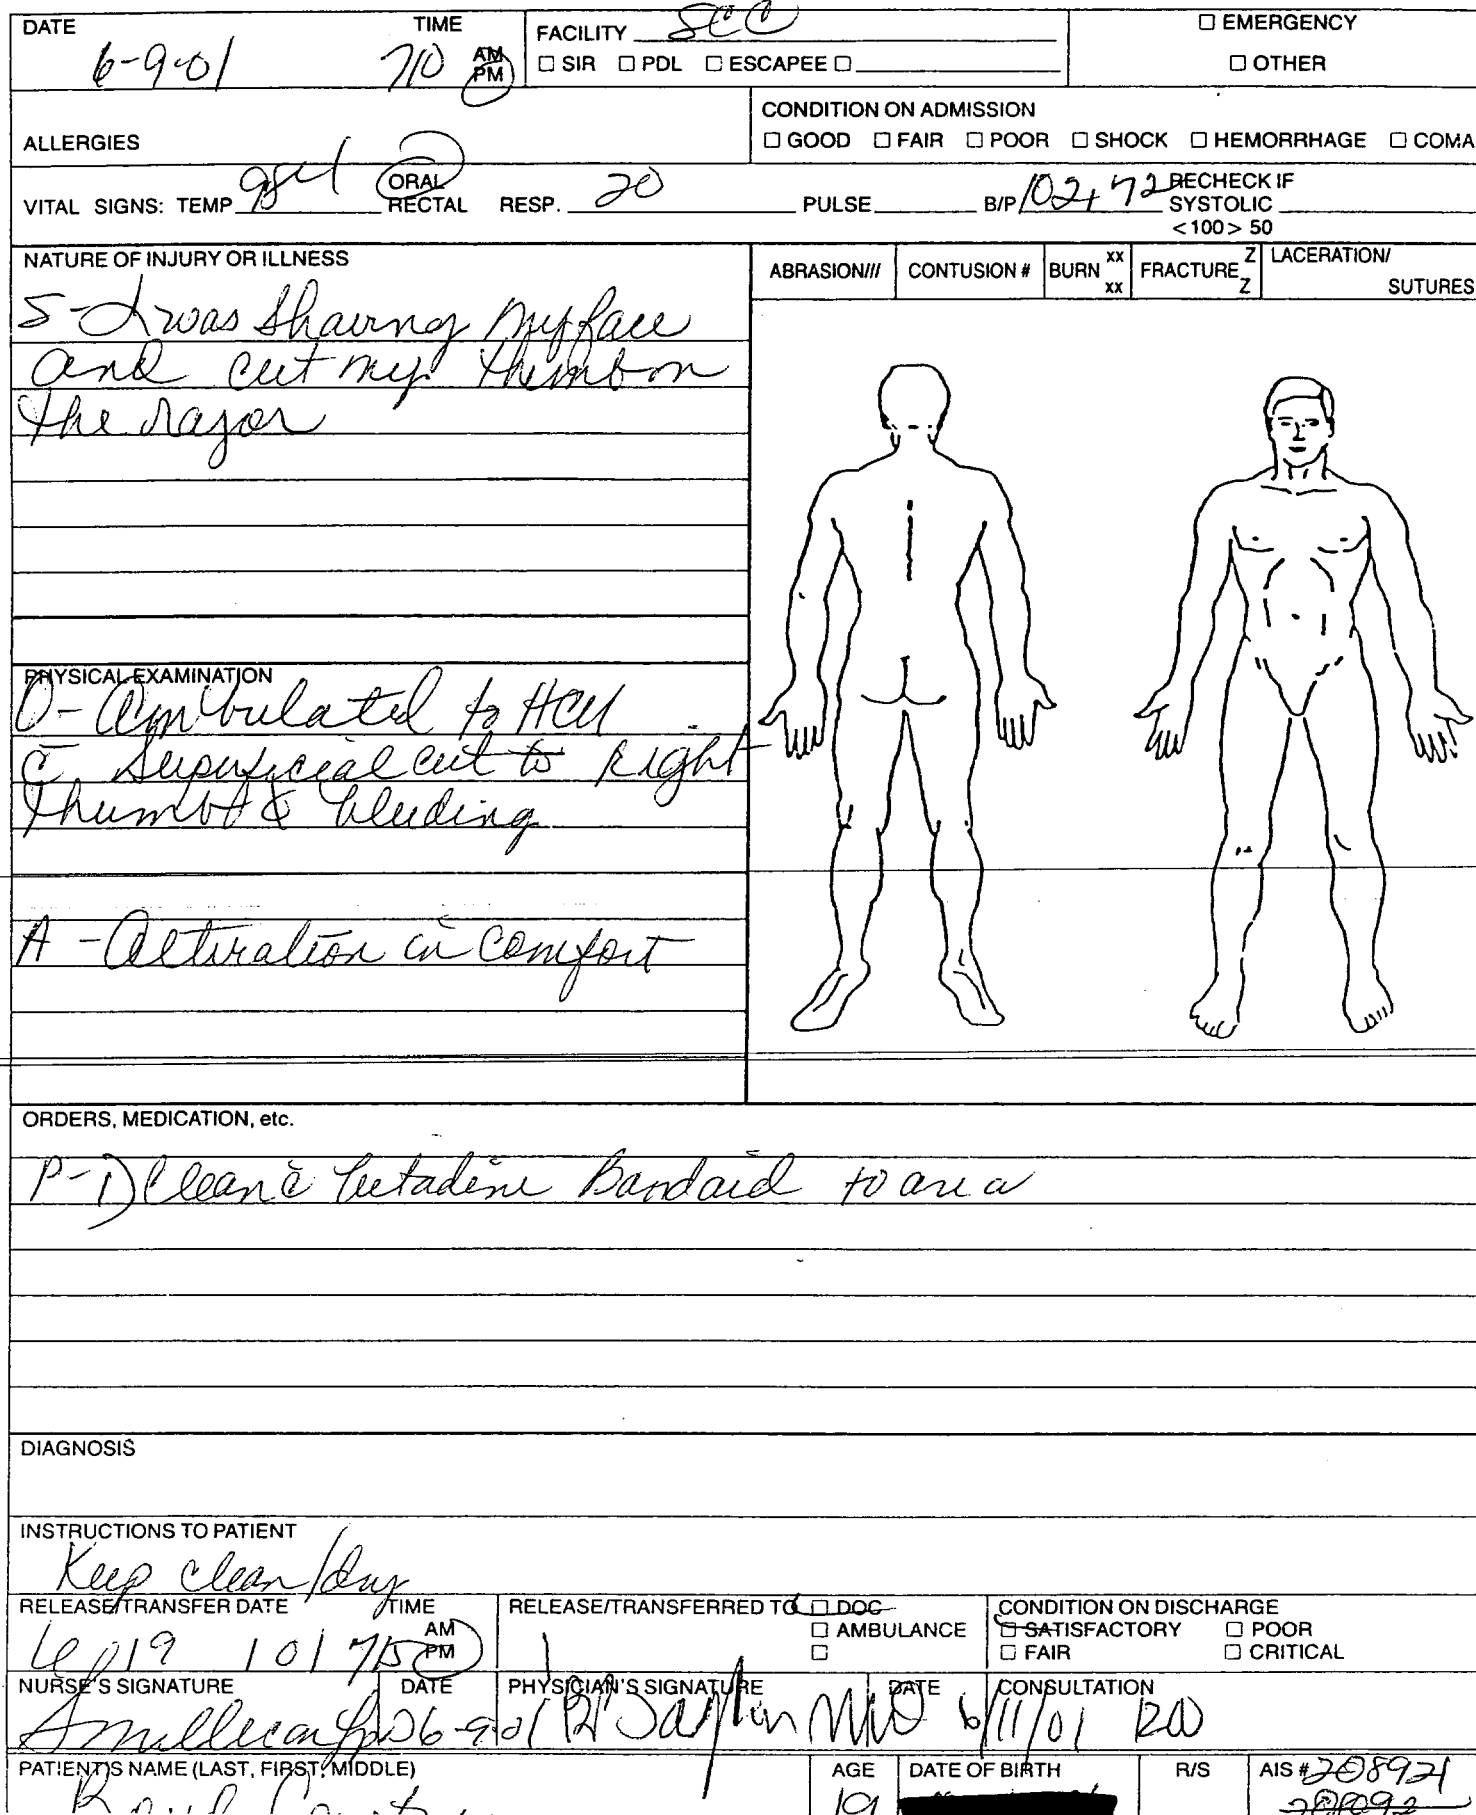 DATE TIME FACILITY SCC ☐ EMERGENCY
6-9-01 710 AM PM ☐ SIR ☐ PDL ☐ ESCAPEE ☐ ☐ OTHER
ALLERGIES CONDITION ON ADMISSION
☐ GOOD ☐ FAIR ☐ POOR ☐ SHOCK ☐ HEMORRHAGE ☐ COMA
VITAL SIGNS: TEMP 984 ORAL RECTAL RESP. 20 PULSE B/P 102/72 RECHECK IF
SYSTOLIC
<100> 50
NATURE OF INJURY OR ILLNESS ABRASION/// CONTUSION # BURN xx xx FRACTURE Z Z LACERATION/ SUTURES
S- I was Shaving my face
and cut my thumb on
the razor
PHYSICAL EXAMINATION
O- Ambulated to HCU
c̄ Superficial cut to Right
thumb bleeding
A - Alteration in Comfort
ORDERS, MEDICATION, etc.
P- 1) Clean c̄ betadine Bandaid to area
DIAGNOSIS
INSTRUCTIONS TO PATIENT
Keep clean/dry
RELEASE/TRANSFER DATE TIME RELEASE/TRANSFERRED TO ☐ DOC CONDITION ON DISCHARGE
6/9/01 715 AM PM ☐ AMBULANCE ☐ SATISFACTORY ☐ POOR
☐ ☐ FAIR ☐ CRITICAL
NURSE'S SIGNATURE DATE PHYSICIAN'S SIGNATURE DATE CONSULTATION
6-9-01 6/11/01
PATIENT'S NAME (LAST, FIRST, MIDDLE) AGE DATE OF BIRTH R/S AIS # 208921
19